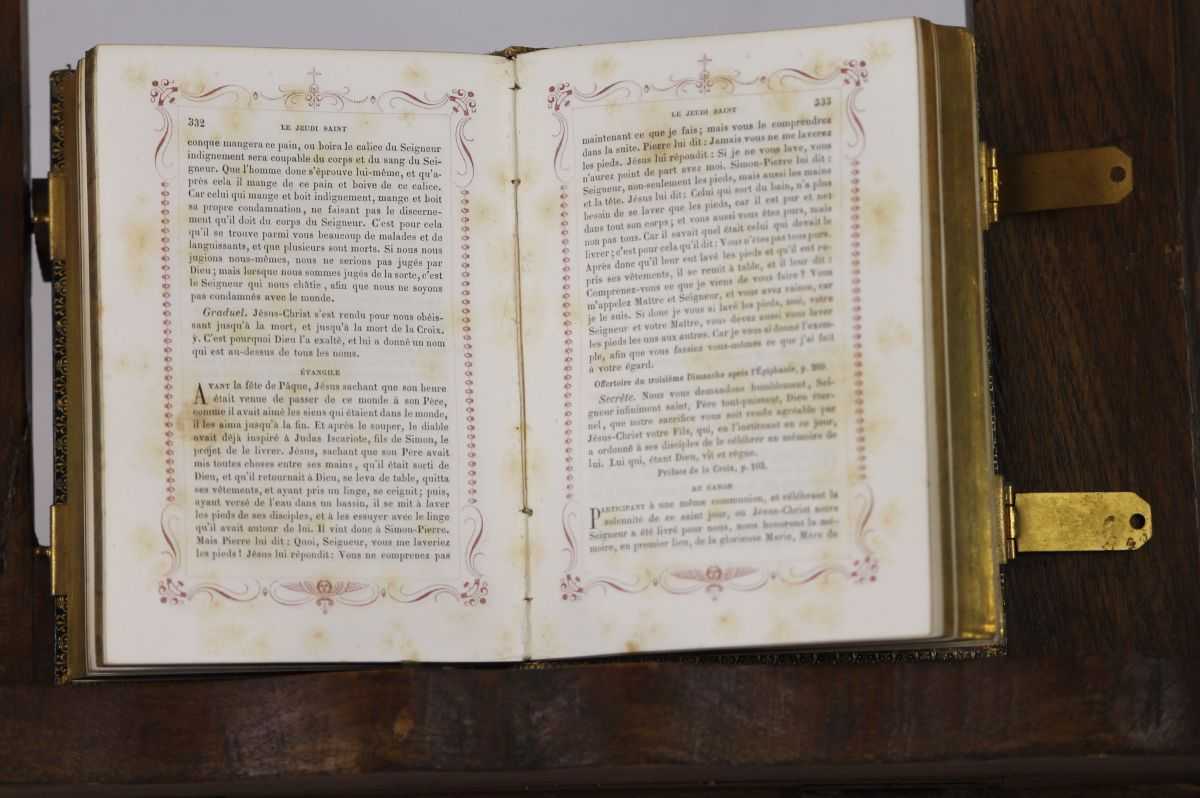 332
LE JEUDI SAINT
conque mangera ce pain, ou boira le calice du Seigneur
indignement sera coupable du corps et du sang du Sei-
gneur. Que l'homme donc s'éprouve lui-même, et qu'a-
près cela il mange de ce pain et boive de ce calice.
Car celui qui mange et boit indignement, mange et boit
sa propre condamnation, ne faisant pas le discerne-
ment qu'il doit du corps du Seigneur. C'est pour cela
qu'il se trouve parmi vous beaucoup de malades et de
languissants, et que plusieurs sont morts. Si nous nous
jugions nous-mêmes, nous ne serions pas jugés par
Dieu; mais lorsque nous sommes jugés de la sorte, c'est
le Seigneur qui nous châtie, afin que nous ne soyons
pas condamnés avec le monde.
Graduel. Jésus-Christ s'est rendu pour nous obéis-
sant jusqu'à la mort, et jusqu'à la mort de la Croix.
℣. C'est pourquoi Dieu l'a exalté, et lui a donné un nom
qui est au-dessus de tous les noms.
ÉVANGILE
AVANT la fête de Pâque, Jésus sachant que son heure
était venue de passer de ce monde à son Père,
comme il avait aimé les siens qui étaient dans le monde,
il les aima jusqu'à la fin. Et après le souper, le diable
avait déjà inspiré à Judas Iscariote, fils de Simon, le
projet de le livrer. Jésus, sachant que son Père avait
mis toutes choses entre ses mains, qu'il était sorti de
Dieu, et qu'il retournait à Dieu, se leva de table, quitta
ses vêtements, et ayant pris un linge, se ceignit; puis,
ayant versé de l'eau dans un bassin, il se mit à laver
les pieds de ses disciples, et à les essuyer avec le linge
qu'il avait autour de lui. Il vint donc à Simon-Pierre.
Mais Pierre lui dit: Quoi, Seigneur, vous me laveriez
les pieds! Jésus lui répondit: Vous ne comprenez pas
LE JEUDI SAINT
333
maintenant ce que je fais; mais vous le comprendrez
dans la suite. Pierre lui dit: Jamais vous ne me laverez
les pieds. Jésus lui répondit: Si je ne vous lave, vous
n'aurez point de part avec moi. Simon-Pierre lui dit:
Seigneur, non-seulement les pieds, mais aussi les mains
et la tête. Jésus lui dit: Celui qui sort du bain, n'a plus
besoin de se laver que les pieds, car il est pur et net
dans tout son corps; et vous aussi vous êtes purs, mais
non pas tous. Car il savait quel était celui qui devait le
livrer; c'est pour cela qu'il dit: Vous n'êtes pas tous purs.
Après donc qu'il leur eut lavé les pieds et qu'il eut re-
pris ses vêtements, il se remit à table, et il leur dit:
Comprenez-vous ce que je viens de vous faire? Vous
m'appelez Maître et Seigneur, et vous avez raison, car
je le suis. Si donc je vous ai lavé les pieds, moi, votre
Seigneur et votre Maître, vous devez aussi vous laver
les pieds les uns aux autres. Car je vous ai donné l'exem-
ple, afin que vous fassiez vous-mêmes ce que j'ai fait
à votre égard.
Offertoire du troisième Dimanche après l'Épiphanie, p.
Secrète. Nous vous demandons humblement, Sei-
gneur infiniment saint, Père tout-puissant, Dieu éter-
nel, que notre sacrifice vous soit rendu agréable par
Jésus-Christ votre Fils, qui, en l'instituant en ce jour,
a ordonné à ses disciples de le célébrer en mémoire de
lui. Lui qui, étant Dieu, vit et règne.
Préface de la Croix, p. 103.
AU CANON
PARTICIPANT à une même communion, et célébrant la
solennité de ce saint jour, où Jésus-Christ notre
Seigneur a été livré pour nous, nous honorons la mé-
moire, en premier lieu, de la glorieuse Marie, Mère de